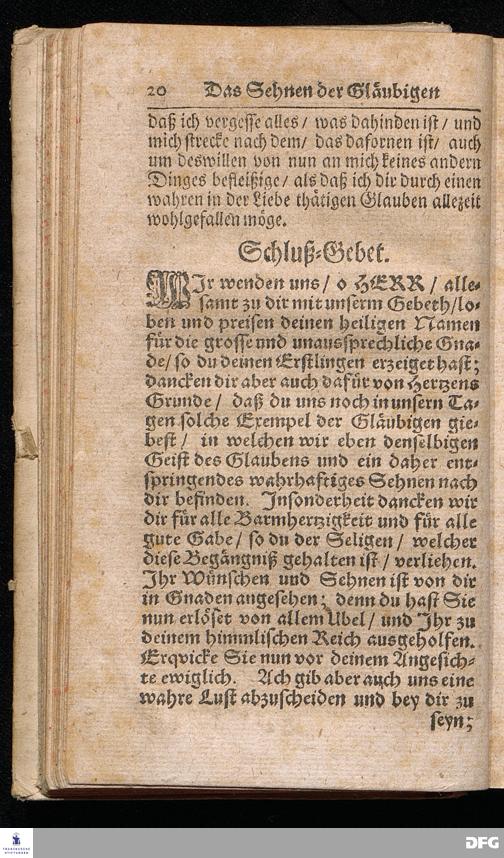 20 Das Sehnen der Gläubigen
daß ich vergesse alles / was dahinden ist / und
mich strecke nach dem / das dafornen ist / auch
um deswillen von nun an mich keines andern
Dinges befleißige / als daß ich dir durch einen
wahren in der Liebe thätigen Glauben allezeit
wohlgefallen möge.
Schluß-Gebet.
WIr wenden uns / o HERR / alle-
samt zu dir mit unserm Gebeth / lo-
ben und preisen deinen heiligen Namen
für die grosse und unaussprechliche Gna-
de / so du deinen Erstlingen erzeiget hast;
dancken dir aber auch dafür von Hertzens
Grunde / daß du uns noch in unsern Ta-
gen solche Exempel der Gläubigen gie-
best / in welchen wir eben denselbigen
Geist des Glaubens und ein daher ent-
springendes wahrhaftiges Sehnen nach
dir befinden. Insonderheit dancken wir
dir für alle Barmhertzigkeit und für alle
gute Gabe / so du der Seligen / welcher
diese Begängniß gehalten ist / verliehen.
Ihr Wünschen und Sehnen ist von dir
in Gnaden angesehen; denn du hast Sie
nun erlöset von allem Ubel / und Ihr zu
deinem himmlischen Reich ausgeholfen.
Erqvicke Sie nun vor deinem Angesich-
te ewiglich. Ach gib aber auch uns eine
wahre Lust abzuscheiden und bey dir zu
seyn;
FRANCKESCHE STIFTUNGEN
DFG